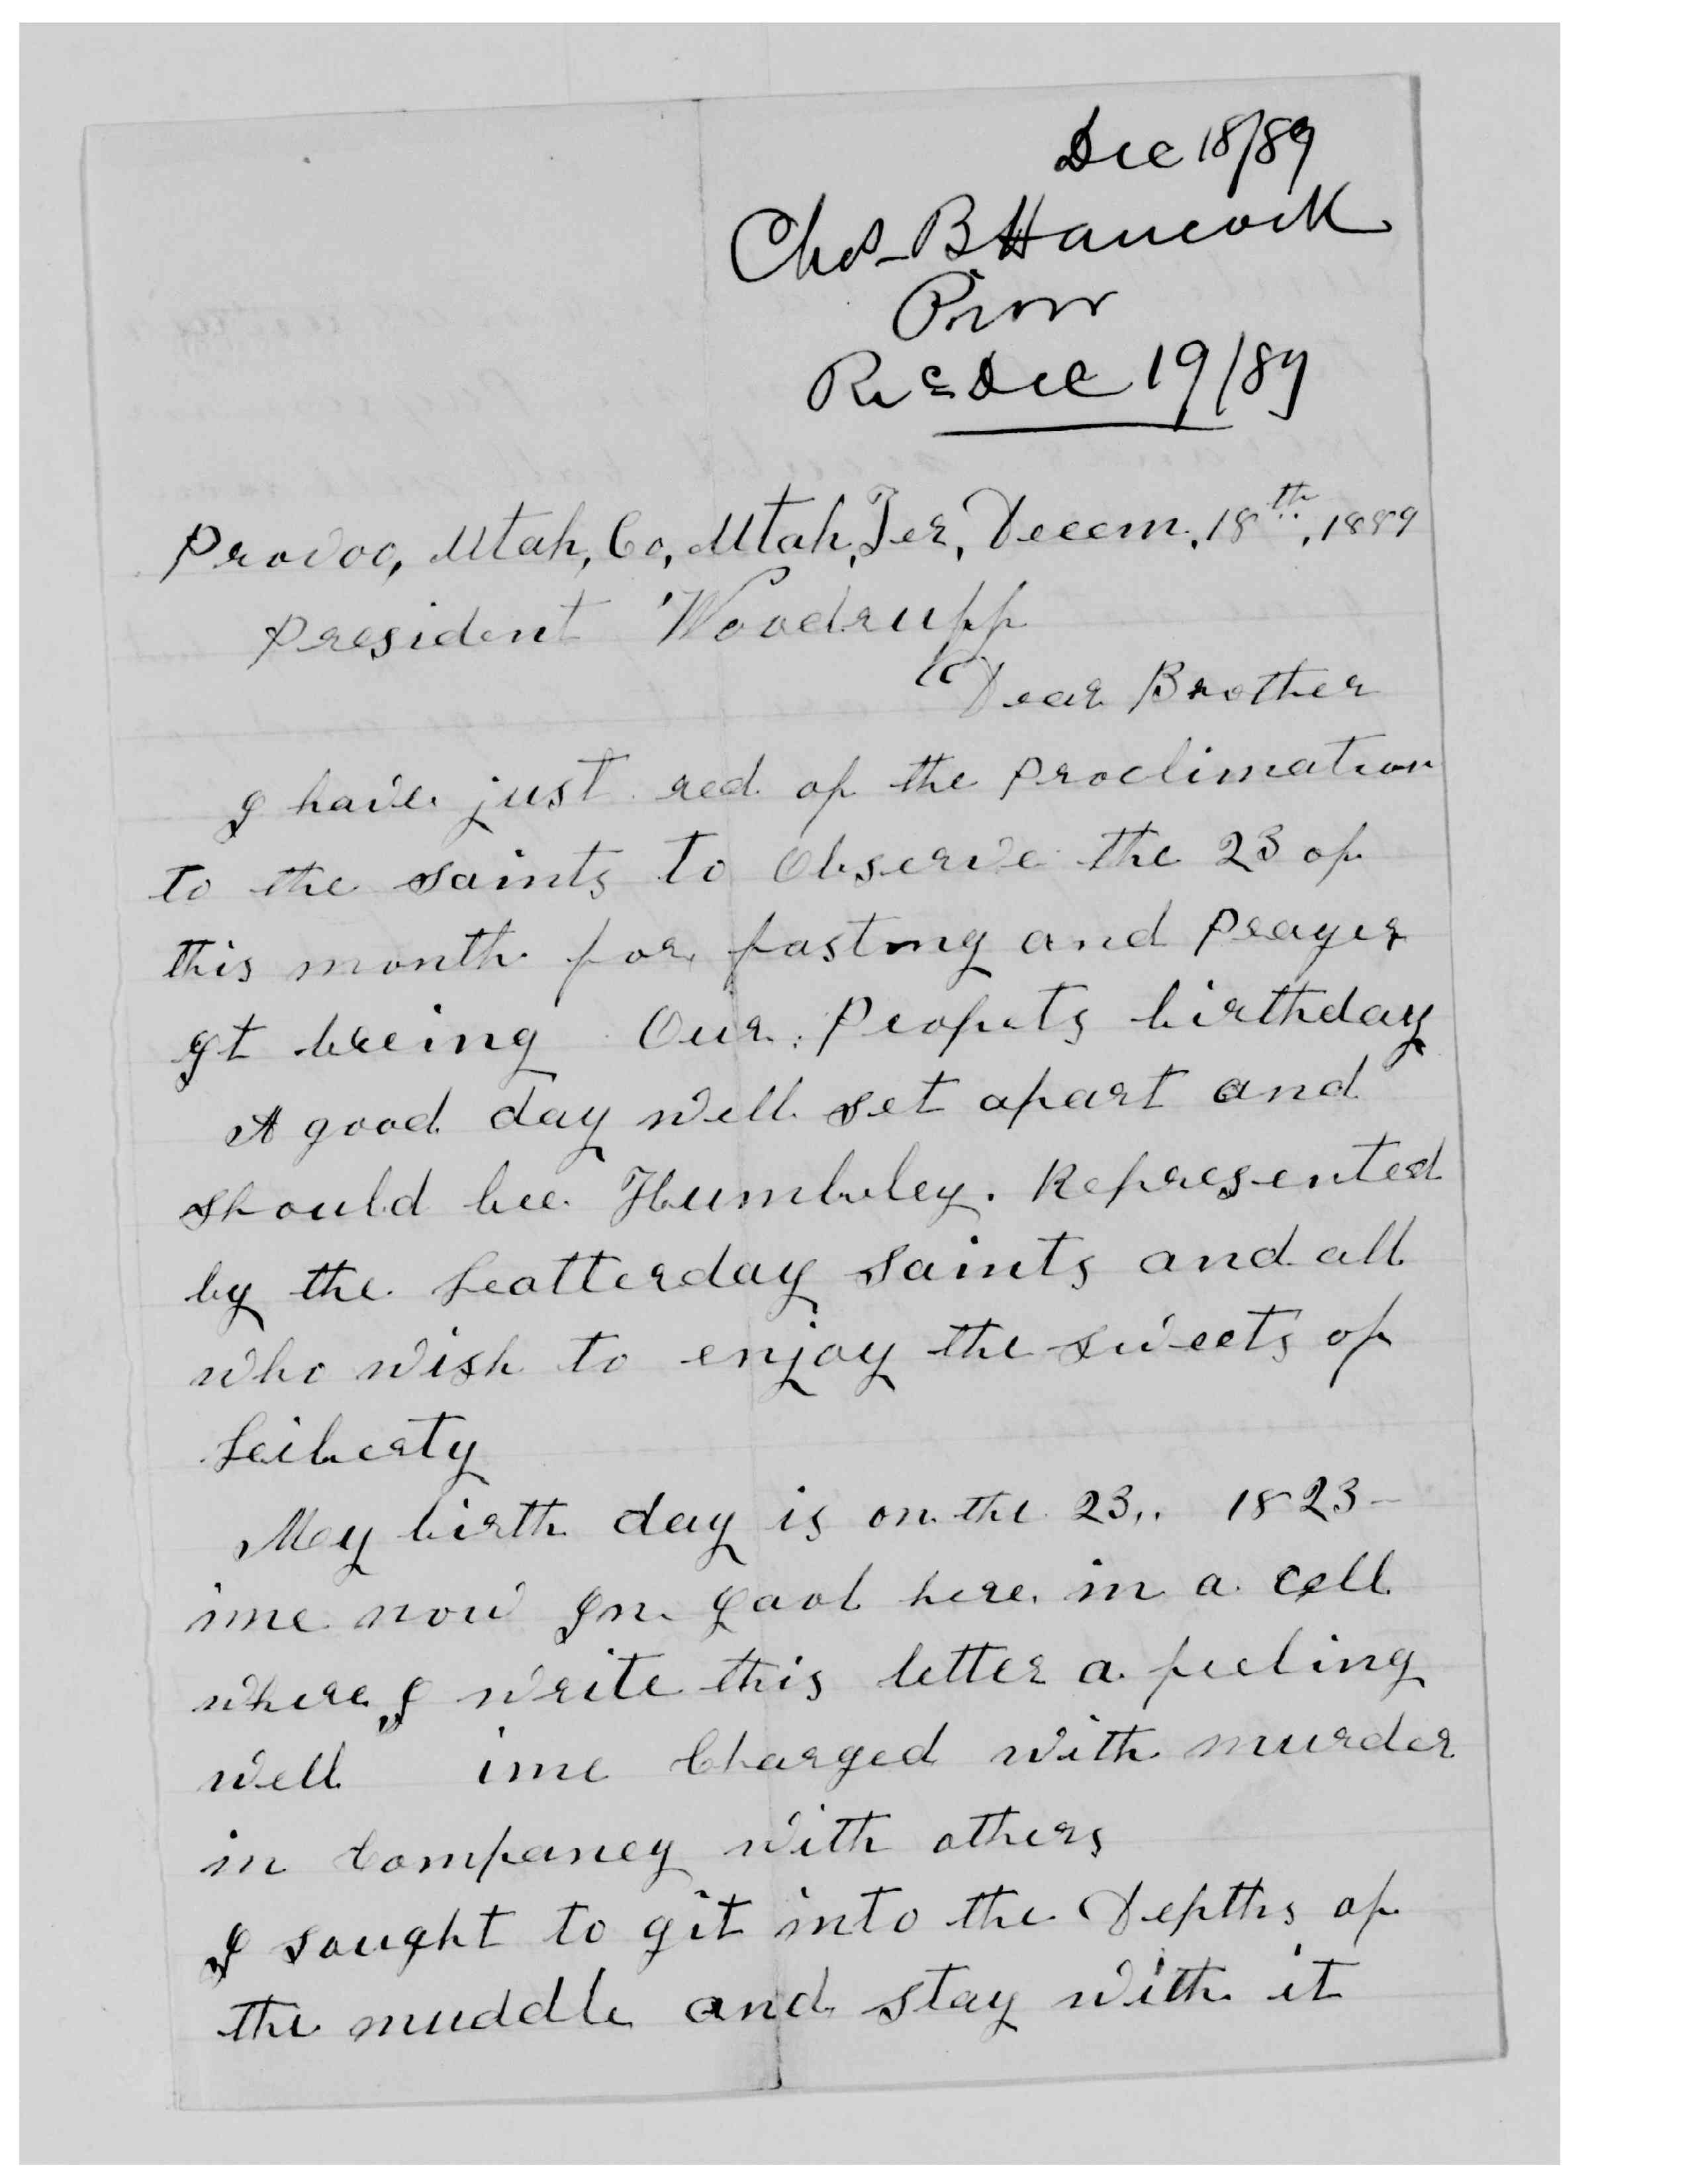 Dec 18/89
Chas- B Hancock
Provo
Rec Dec 19/89
Provoo, Utah, Co, Utah, Ter, Decem, 18th, 1889
President Woodruff
Dear Brother
I have just red of the Proclimation
to the saints to Observe the 23 of
this month for fasting and Prayer
It beeing Our Propets birthday
A good day well set apart and
should bee Humbeley. Represented
by the Leatterday Saints and all
who wish to enjoy the sweets of
Leiberty
Mey birth day is on the 23,. 1823-
ime now In gaol here in a cell
where I write this letter a feeling
well ime Charged with murder
in Companey with others
I sought to git into the Depths of
the muddle and stay with it